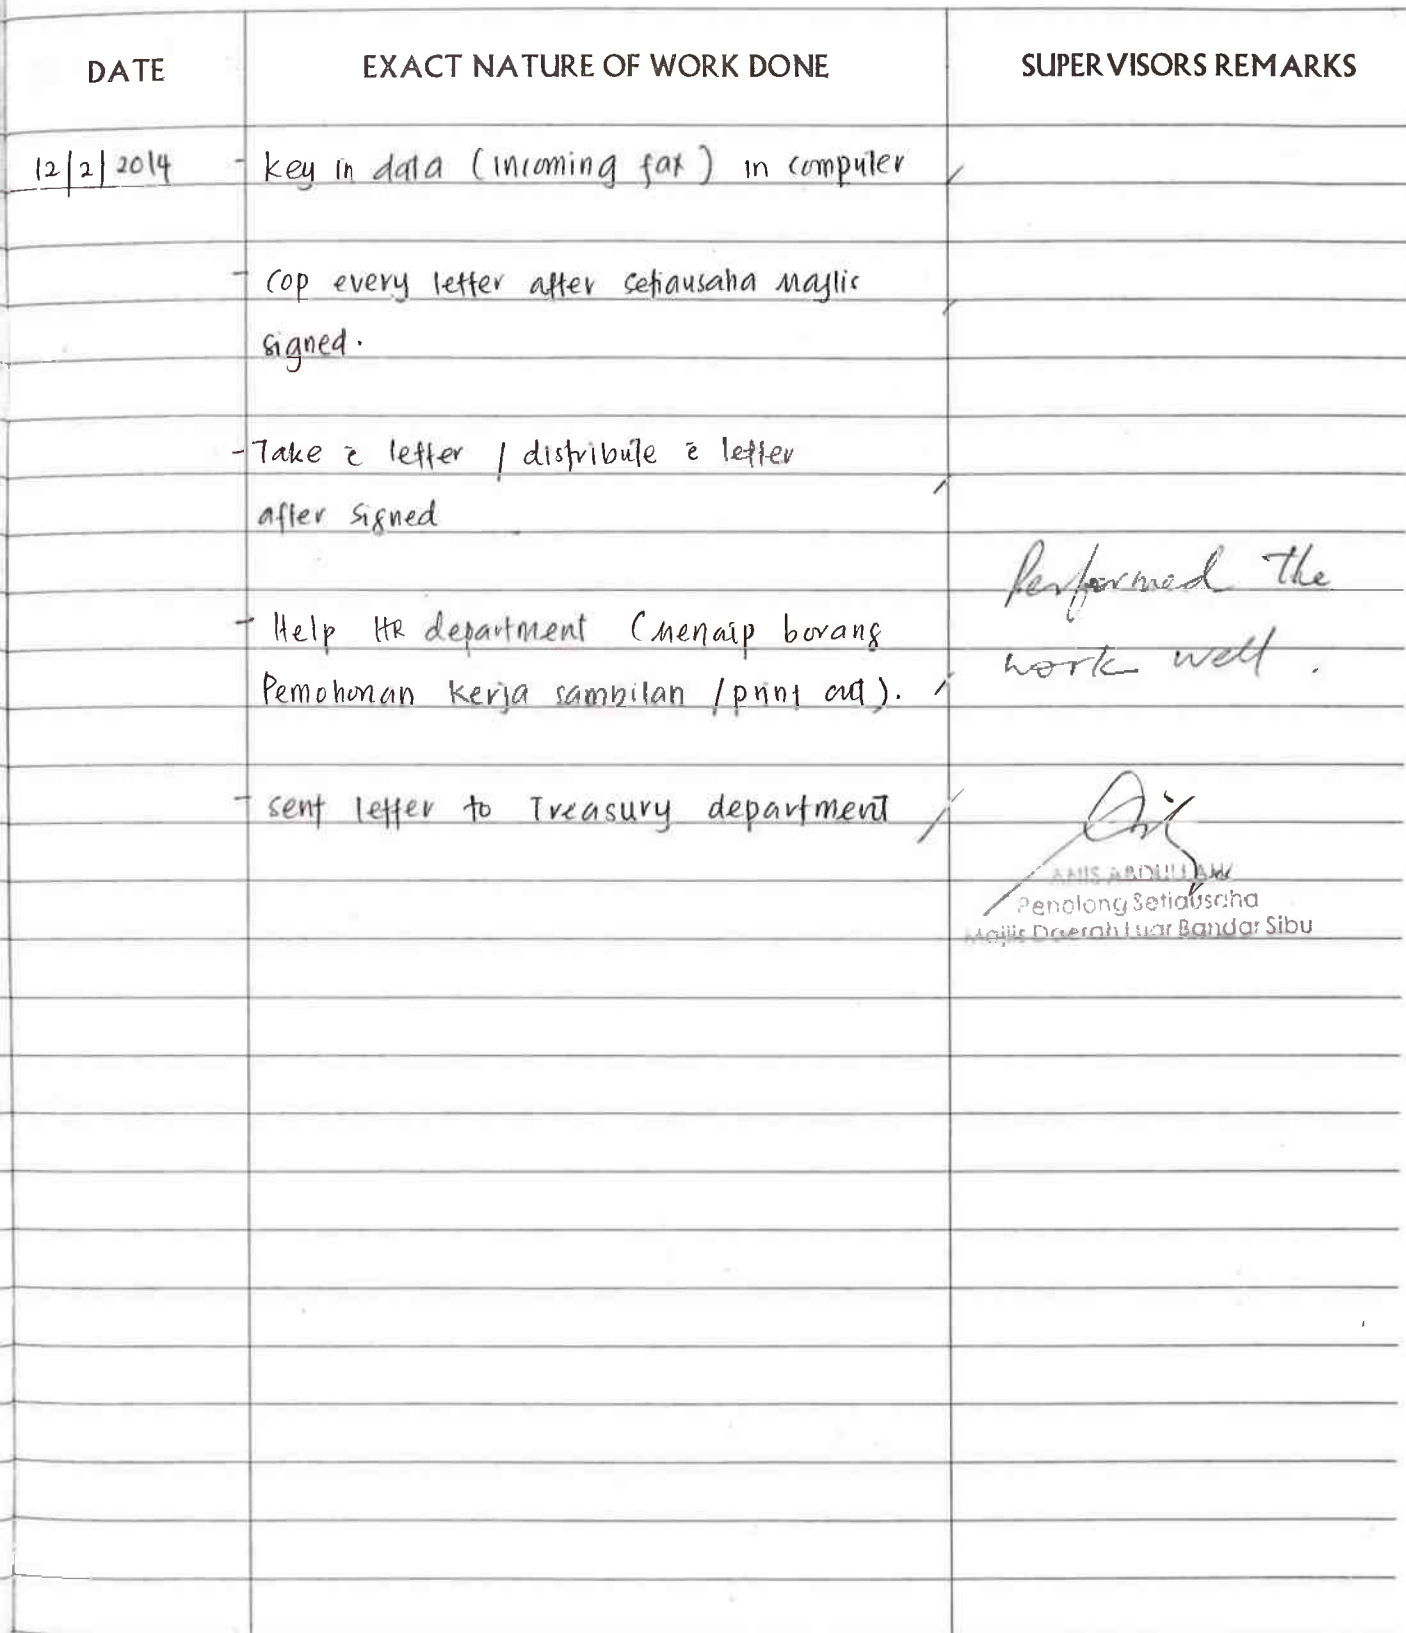 DATE EXACT NATURE OF WORK DONE SUPERVISORS REMARKS
12/2/2014 - key in data (incoming fax) in computer /
- cop every letter after setiausaha Majlis /
signed.
- Take e letter / distribute e letter /
after signed
- Help HR department (menaip borang
Pemohonan kerja sambilan / print out). /
- sent letter to Treasury department /
Performed the
work well.
ANIS ABDULLAH
Penolong Setiausaha
Majlis Daerah Luar Bandar Sibu